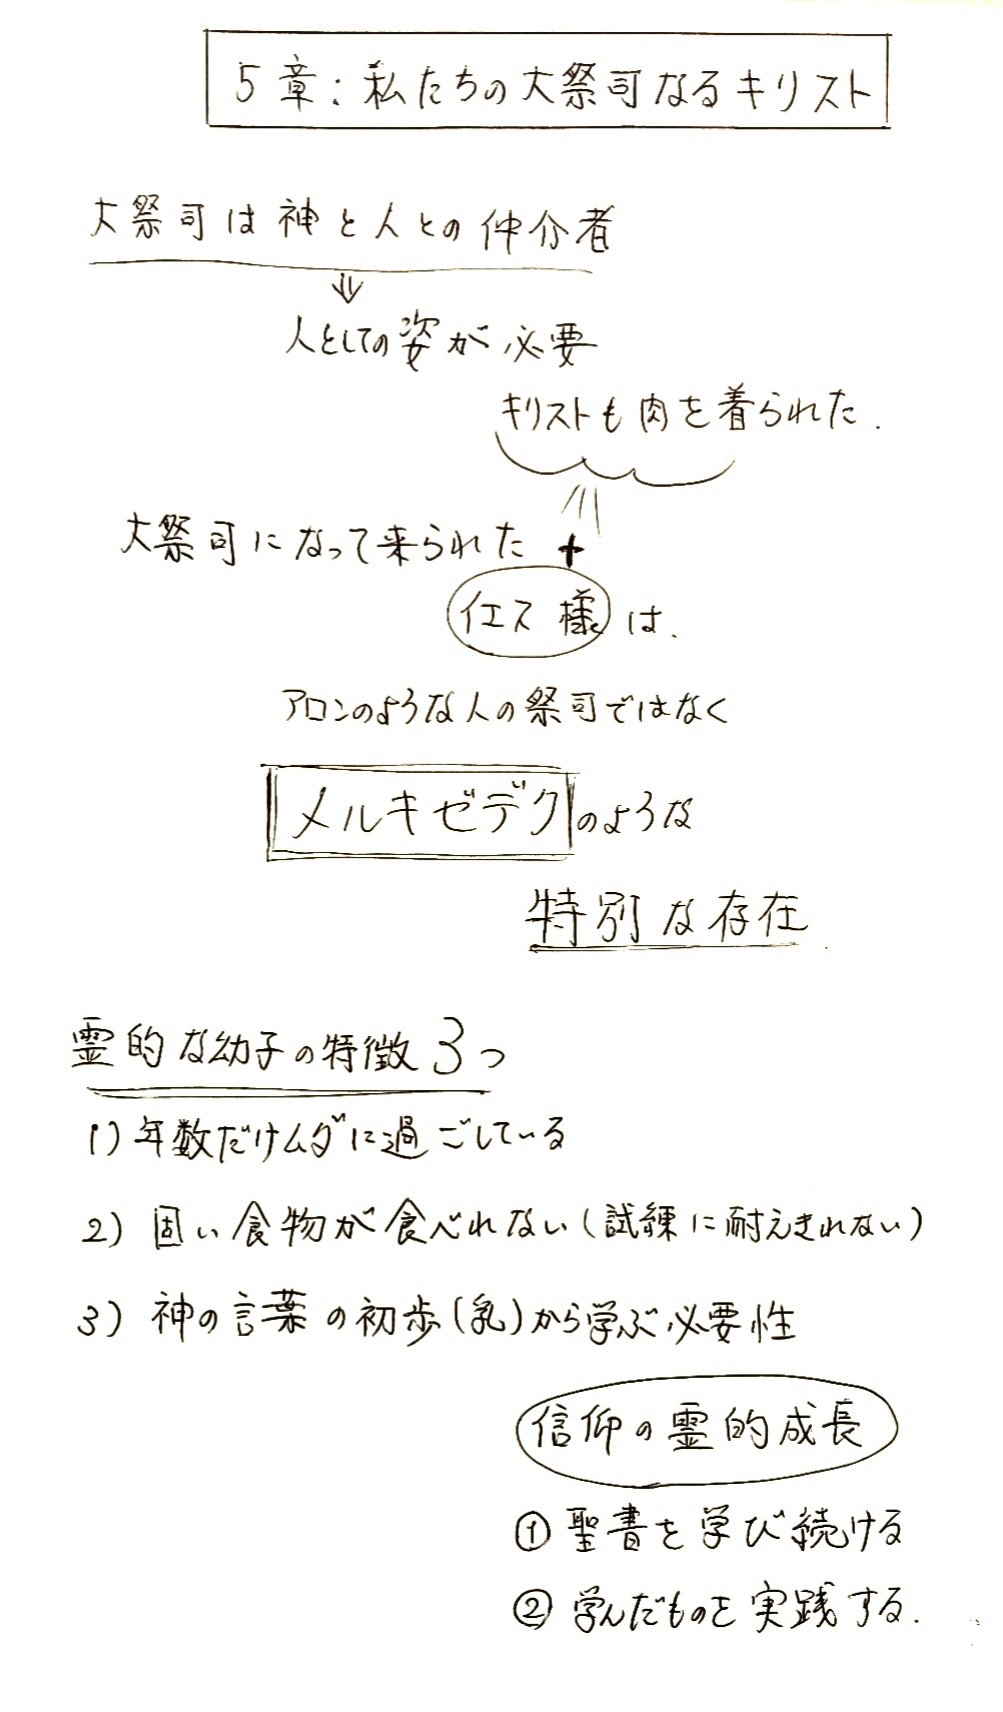 5章:私たちの大祭司なるキリスト
大祭司は神と人との仲介者
⇓
人としての姿が必要
キリストも肉を着られた.
大祭司になって来られた +
イエス様は、
アロンのような人の祭司ではなく
メルキゼデクのような
特別な存在
霊的な幼子の特徴3つ
1)年数だけムダに過ごしている
2)固い食物が食べれない(試練に耐えきれない)
3)神の言葉の初歩(乳)から学ぶ必要性
信仰の霊的成長
①聖書を学び続ける
②学んだものを実践する.